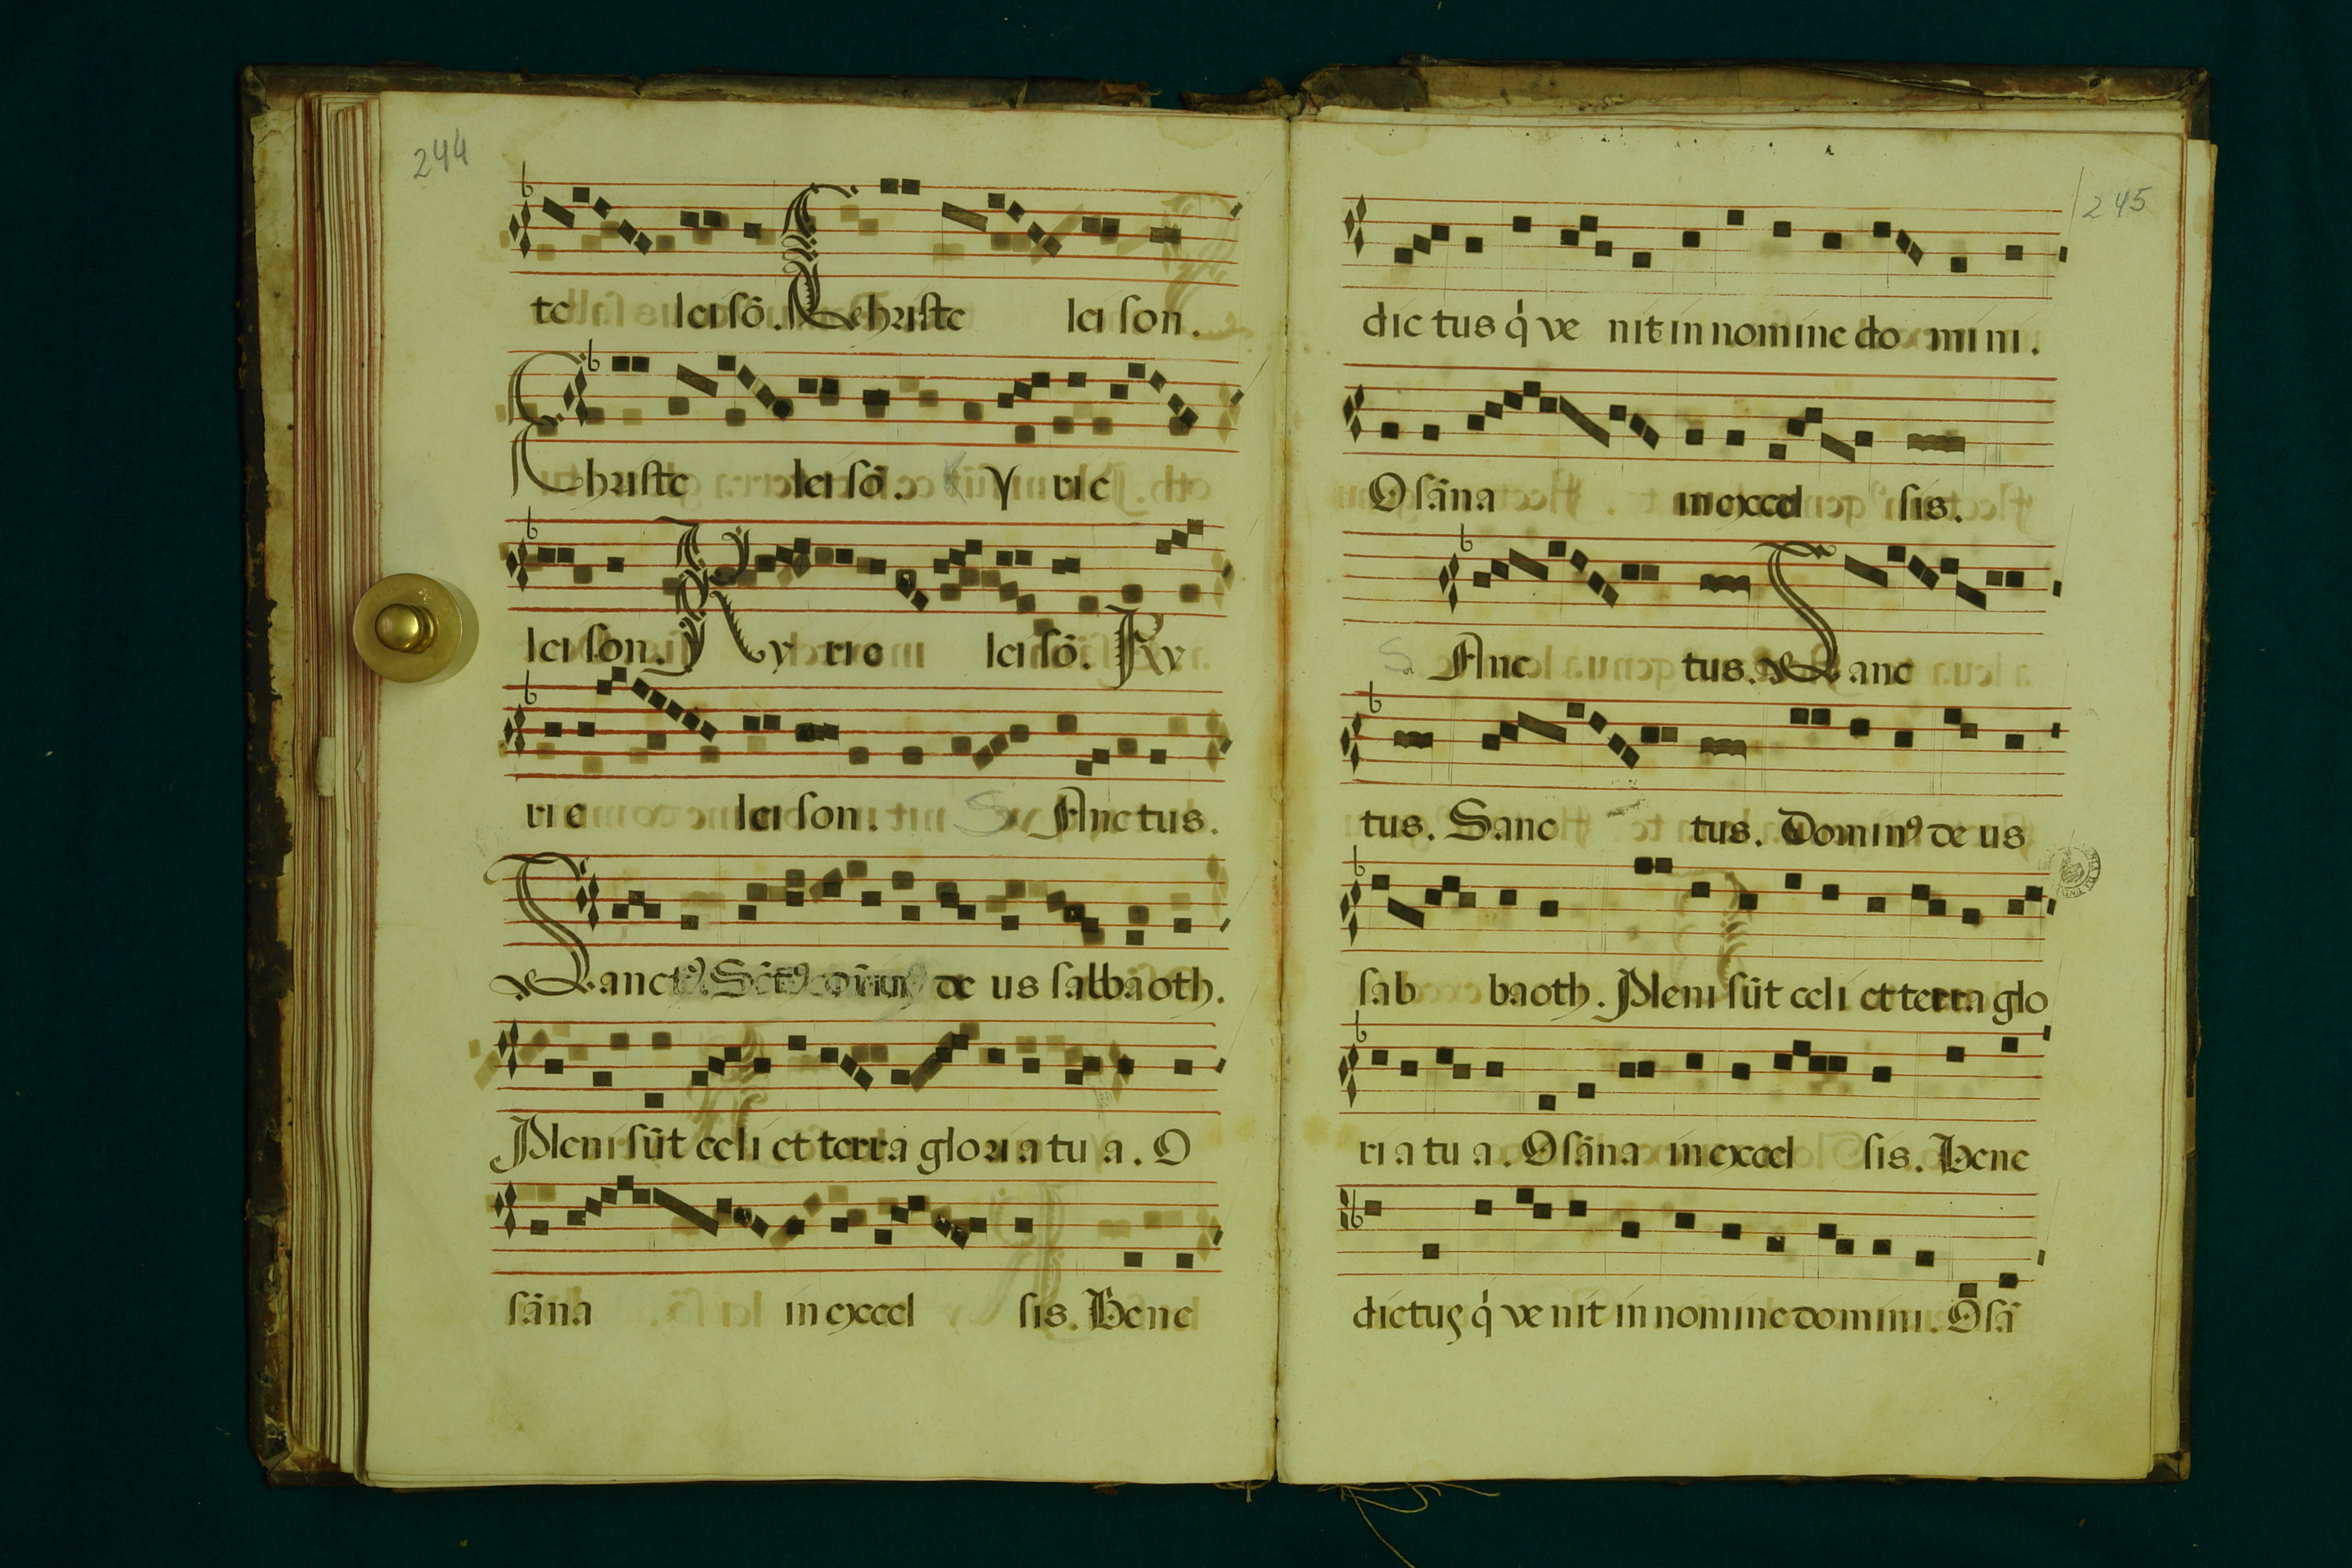 244
te leisō. Christe leison.
Christe leisō. Yrie
leison. Kyrie leisō. Ky
rie leison. S Anctus.
Sanctꝰ. Sc̄tꝰ de us sabbaoth.
Pleni sūt celi et terra gloria tu a. O
sāna in excel sis. Bene
245
dictus q̇ ve nit in nomine do mini.
Osāna in excel sis.
S Anc tus. Sanc
tus. Sanc tus. Dominꝰ de us
sab baoth. Pleni sūt celi et terra glo
ria tu a. Osāna in excel sis. Bene
dictus q̇ ve nit in nomine domini. Osā